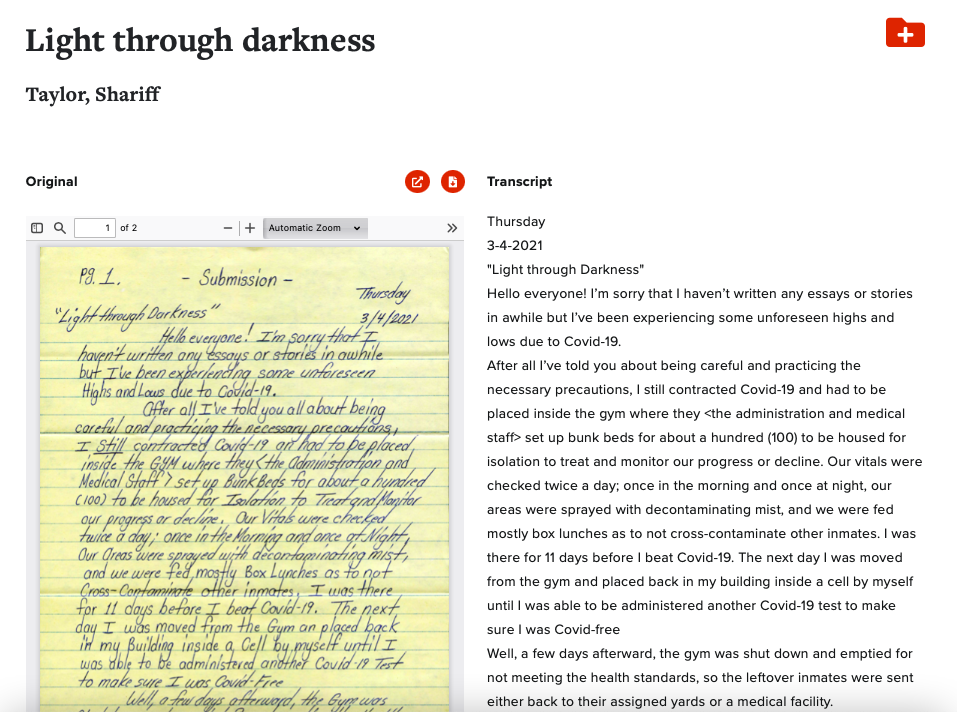 Light through darkness
Taylor, Shariff
Original
Transcript
1 of 2
Automatic Zoom
Pg. 1.
- Submission -
Thursday
"Light through Darkness"
3/4/2021
Hello everyone! I'm sorry that I
haven't written any essays or stories in awhile
but I've been experiencing some unforeseen
Highs and Lows due to Covid-19.
After all I've told you all about being
careful and practicing the necessary precautions,
I Still contracted Covid-19 an had to be placed
inside the GYM where they <the Administration and
Medical Staff> set up BunkBeds for about a hundred
(100) to be housed for Isolation to Treat and Monitor
our progress or decline. Our Vitals were checked
twice a day; once in the Morning and once at Night,
Our Areas were sprayed with decontaminating mist,
and we were fed mostly Box Lynches as to not
Cross-Contaminate other inmates. I was there
for 11 days before I beat Covid-19. The next
day I was moved from the Gym an placed back
in my Building inside a Cell by myself until I
was able to be administered another Covid-19 Test
to make sure I was Covid-Free
Well, a few days afterward, the Gym was
Thursday
3-4-2021
"Light through Darkness"
Hello everyone! I’m sorry that I haven’t written any essays or stories
in awhile but I’ve been experiencing some unforeseen highs and
lows due to Covid-19.
After all I’ve told you about being careful and practicing the
necessary precautions, I still contracted Covid-19 and had to be
placed inside the gym where they <the administration and medical
staff> set up bunk beds for about a hundred (100) to be housed for
isolation to treat and monitor our progress or decline. Our vitals were
checked twice a day; once in the morning and once at night, our
areas were sprayed with decontaminating mist, and we were fed
mostly box lunches as to not cross-contaminate other inmates. I was
there for 11 days before I beat Covid-19. The next day I was moved
from the gym and placed back in my building inside a cell by myself
until I was able to be administered another Covid-19 test to make
sure I was Covid-free
Well, a few days afterward, the gym was shut down and emptied for
not meeting the health standards, so the leftover inmates were sent
either back to their assigned yards or a medical facility.